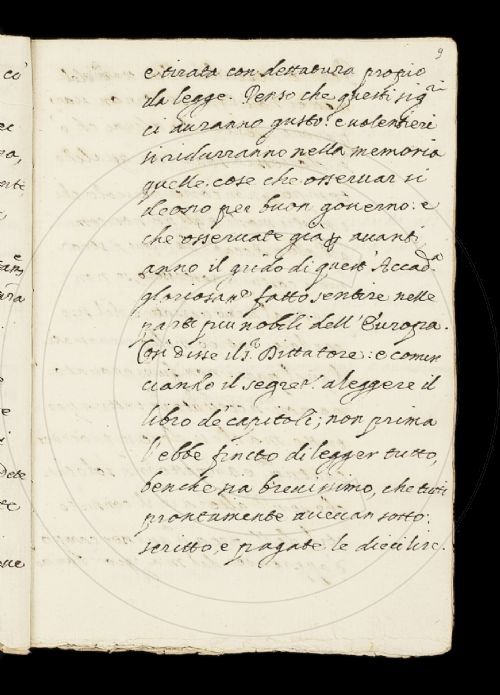 9
e tirata con dettatura propio
da legge. Penso che questi sig.ri
ci auranno gusto: e uolentieri
si ridurranno nella memoria
quelle cose che osseruar si
deono per buon gouerno: e
che osseruate già p auanti
anno il grido di quest' Accad.a
gloriosam.e fatto sentire nelle
parti piu nobili dell' Europa.
Così disse il S.r Dittatore: e comin
ciando il segret.o a leggere il
libro de capitoli; non prima
l'ebbe finito di legger tutto,
benche sia breuissimo, che tutti
prontamente aueuan sotto:
scritto e pagate le dieci lire.